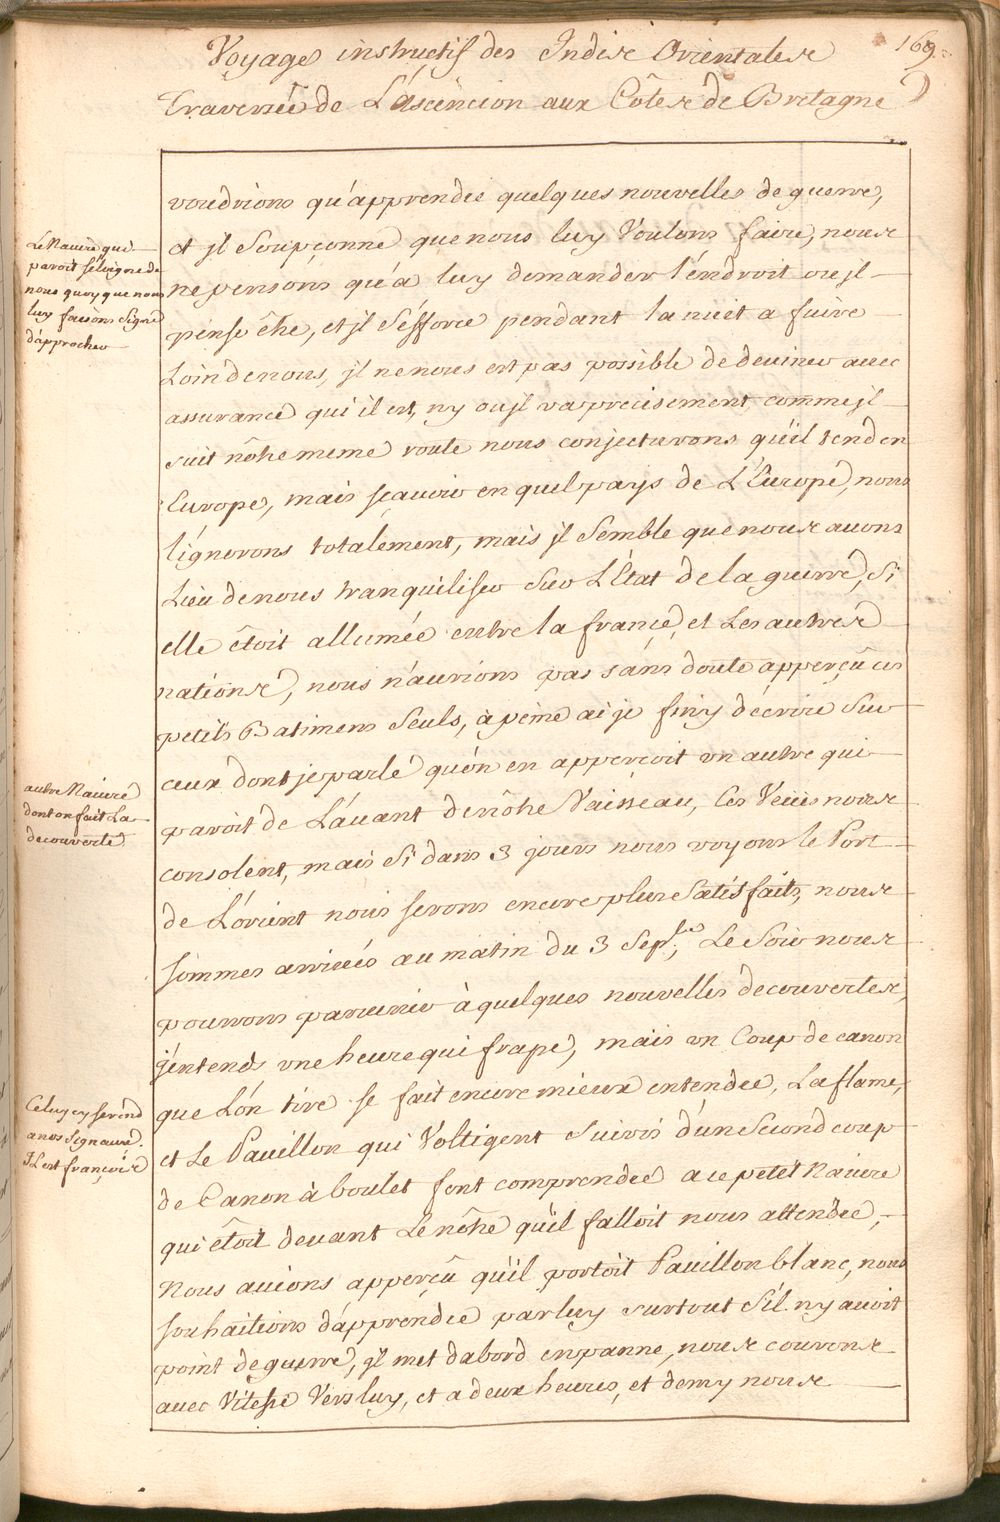 Voyage instructif des Indise Orientalese 169.
traversée de L'áscéncion aux Côtese de Bretagne
voudrions qu'apprendre quelques nouvelles de guerre,
et jl Soupçonne que nous luy Voulons faire, nouse
ne pensons qu'a luy demander l'éndroit ou jl
pense être, et jl S'éfforce pendant la nuit a fuire
Loin de nous, jl ne nous est pas possible de deviner avec
assurance qui il est, ny ou jl va precisement comme jl
suit nôtre meme route nous conjecturons qu'il tend en
Europe, mais scavoir en quel pays de L'Europe, nous
l'ignorons totalément, mais jl Semble que nouse avons
Lieu de nous tranquiliser Sur L'État de la guerre, Si
elle êtoit allumée entre la france, et Les autrese
nationse, nous n'aurions pas sáns doute apperçû ces
petits Batimens Seuls, à peine ai je finy d'écrire Sur
ceux dont je parle qu'on en apperçoit un autre qui
paroit de L'avant de nôtre Vaisseau, Ces Veües nouse
consolent, mais Si dans 3 jours nous voyons le Port
de L'orient nous serons encore pluse Satisfaits, nouse
sommes arrivés au matin du 3 Sep.bre, Le Soir nouse
pourrons parvenir à quelques nouvelles decouvertese,
j'éntends une heure qui frape, mais un Coup de canon
que L'on tire se fait encore mieux entendre, La flame,
et Le Pavillon qui Voltigent suivis d'un Second coup
de Canon à boulet font comprendre a ce petit Navire
qui êtoit devant Le nôtre qu'il falloit nous attendre,
Nous avions apperçû qu'il portoit Pavillon blanc, nous
souhaitions d'apprendre par luy surtout S'il n'y avoit
point de guerre, jl met d'abord en panne, nouse couronse
avec Vitesse Vers luy, et a deux heures, et demy nouse
Le Navire qui
paroit s'éloigne de
nous quoy que nous
luy faisons Signe
d'approcher
autre Navire
dont on fait La
decouverte
Celuy cy se rend
a nos Signaux.
Il est françoise